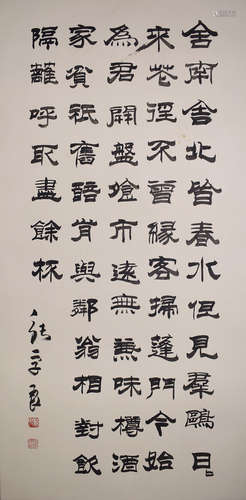 舍南舍北皆春水但見羣鷗日〻
來花徑不曾緣客掃蓬門今始
為君開盤飧市遠無兼味樽酒
家貧祇舊醅肯與鄰翁相對飲
隔籬呼取盡餘杯